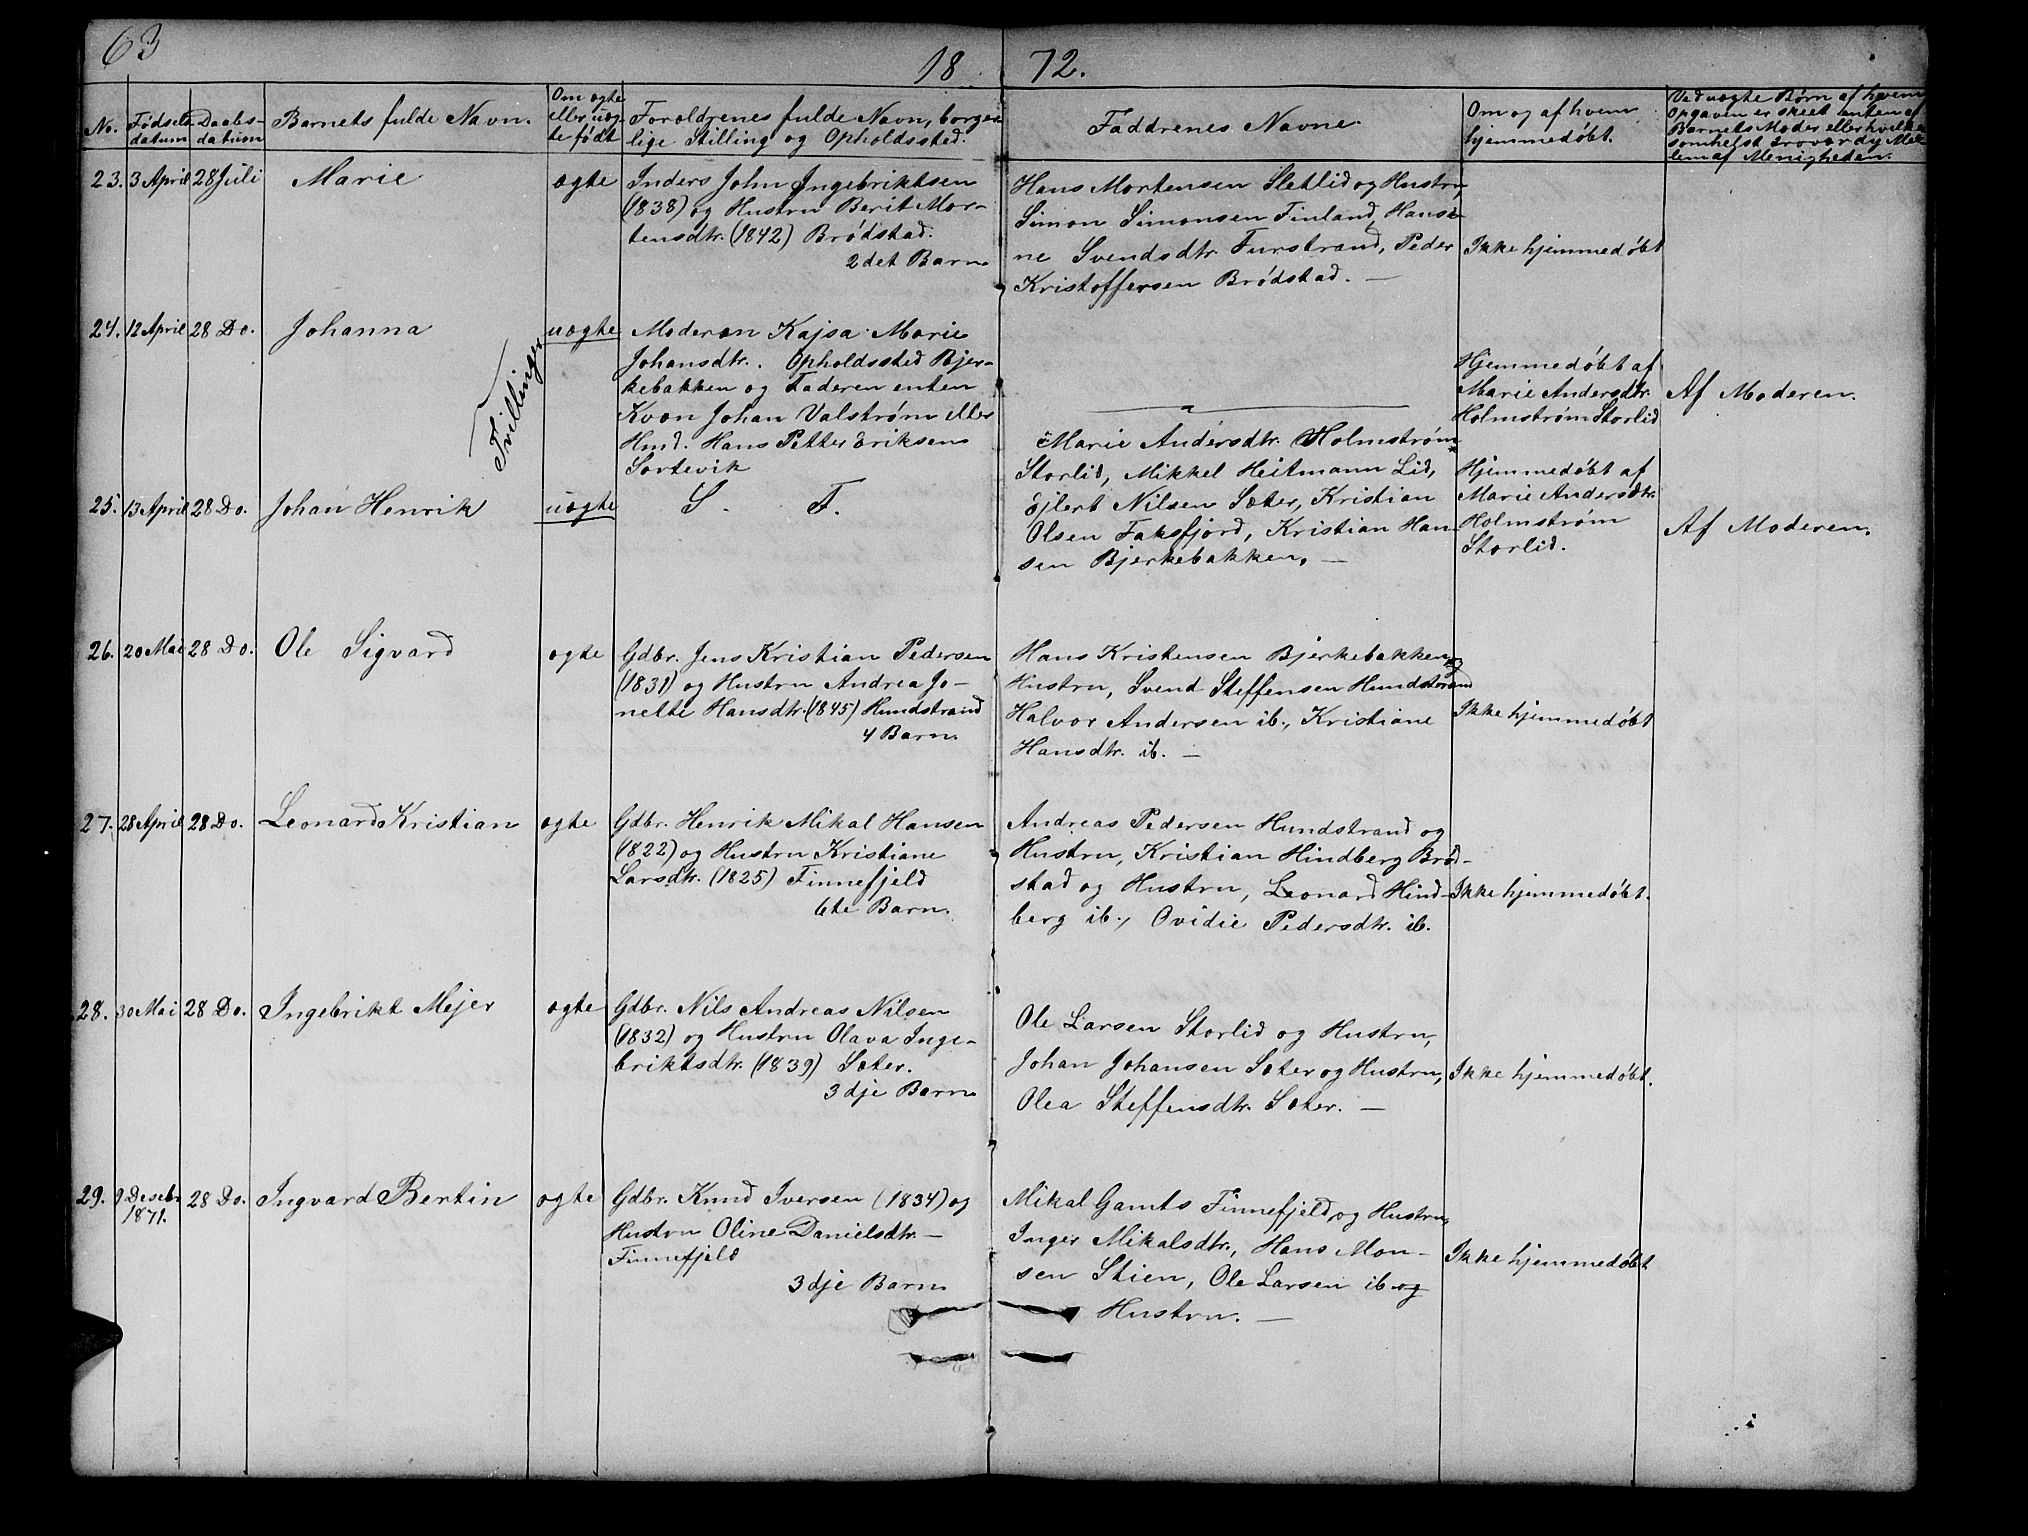 63
18 72.
No.
Fødsels-
datum
Daabs-
datum
Barnets fulde Navn.
Om ægte
eller uæg-
te født
Forældrenes fulde Navn, borger-
lige Stilling og Opholdssted.
Faddrenes Navne.
Om og af hvem
hjemmedøbt.
Ved uægte Børn af hvem
Opgaven er skeet enten af
Barnets Moder eller hvilke
somhelst troværdy Med
lem af Menigheden.
23. 3 April 28 Juli Marie ægte
Inders John Ingebriktsen
(1838) og Hustru Berit Mor-
tensdtr. (1842) Brødstad.
2det Barn
Hans Mortensen Sletlid og Hustru,
Simon Simonsen Finland, Hansi-
ne Svendsdtr. Furstrand, Peder
Kristoffersen Brødstad. —
Ikke hjemmedøbt
24. 12 April 28 Do. Johanna uægte
Tvillinger
Moderen Kajsa Marie
Johansdtr. Opholdssted Bjer-
kebakken og Faderen enten
Kvæn Johan Valstrøm eller
Hmd. Hans Petter Eriksen
Sortevik
Hjemmedøbt af
Marie Andersdtr.
Holmstrøm Storlid
Af Moderen.
25. 13 April 28 Do. Johan Henrik uægte
S. T.
Marie Andersdtr. Holmstrøm
Storlid, Mikkel Heitmann Lid,
Ejlert Nilsen Sæter, Kristian
Olsen Faksfjord, Kristian Han-
sen Bjerkebakken. —
Hjemmedøbt af
Marie Andersdtr.
Holmstrøm
Storlid.
Af Moderen.
26. 20 Mai 28 Do. Ole Sigvard ægte
Gdbr. Jens Kristian Pedersen
(1831) og Hustru Andrea Jo-
nette Hansdtr. (1845) Hundstrand
4 Barn.
Hans Kristensen Bjerkebakken og
Hustru, Svend Steffensen Hundstrand
Halvor Andersen ib., Kristiane
Hansdtr. ib. —
Ikke hjemmedøbt
27. 28 April 28 Do. Leonard Kristian ægte
Gdbr. Henrik Mikal Hansen
(1822) og Hustru Kristiane
Larsdtr. (1825) Finnefjeld
6te Barn.
Andreas Pedersen Hundstrand og
Hustru, Kristian Hindberg Brød-
stad og Hustru, Leonard Hind-
berg ib., Ovidie Pedersdtr. ib.
Ikke hjemmedøbt.
28. 30 Mai 28 Do. Ingebrikt Mejer ægte
Gdbr. Nils Andreas Nilsen
(1832) og Hustru Olava Inge-
briktsdtr. (1839) Sæter.
3dje Barn
Ole Larsen Storlid og Hustru,
Johan Johansen Sæter og Hustru,
Olea Steffensdtr. Sæter. —
Ikke hjemmedøbt.
29. 9 Desebr 28 Do. Ingvard Bertin ægte
1871.
Gdbr. Knud Iversen (1834) og
Hustru Oline Danielsdtr. —
Finnefjeld
3dje Barn
Mikal Gamts Finnefjeld og Hustru,
Inger Mikalsdtr., Hans Mon-
sen Stien, Ole Larsen ib og
Hustru. —
Ikke hjemmedøbt